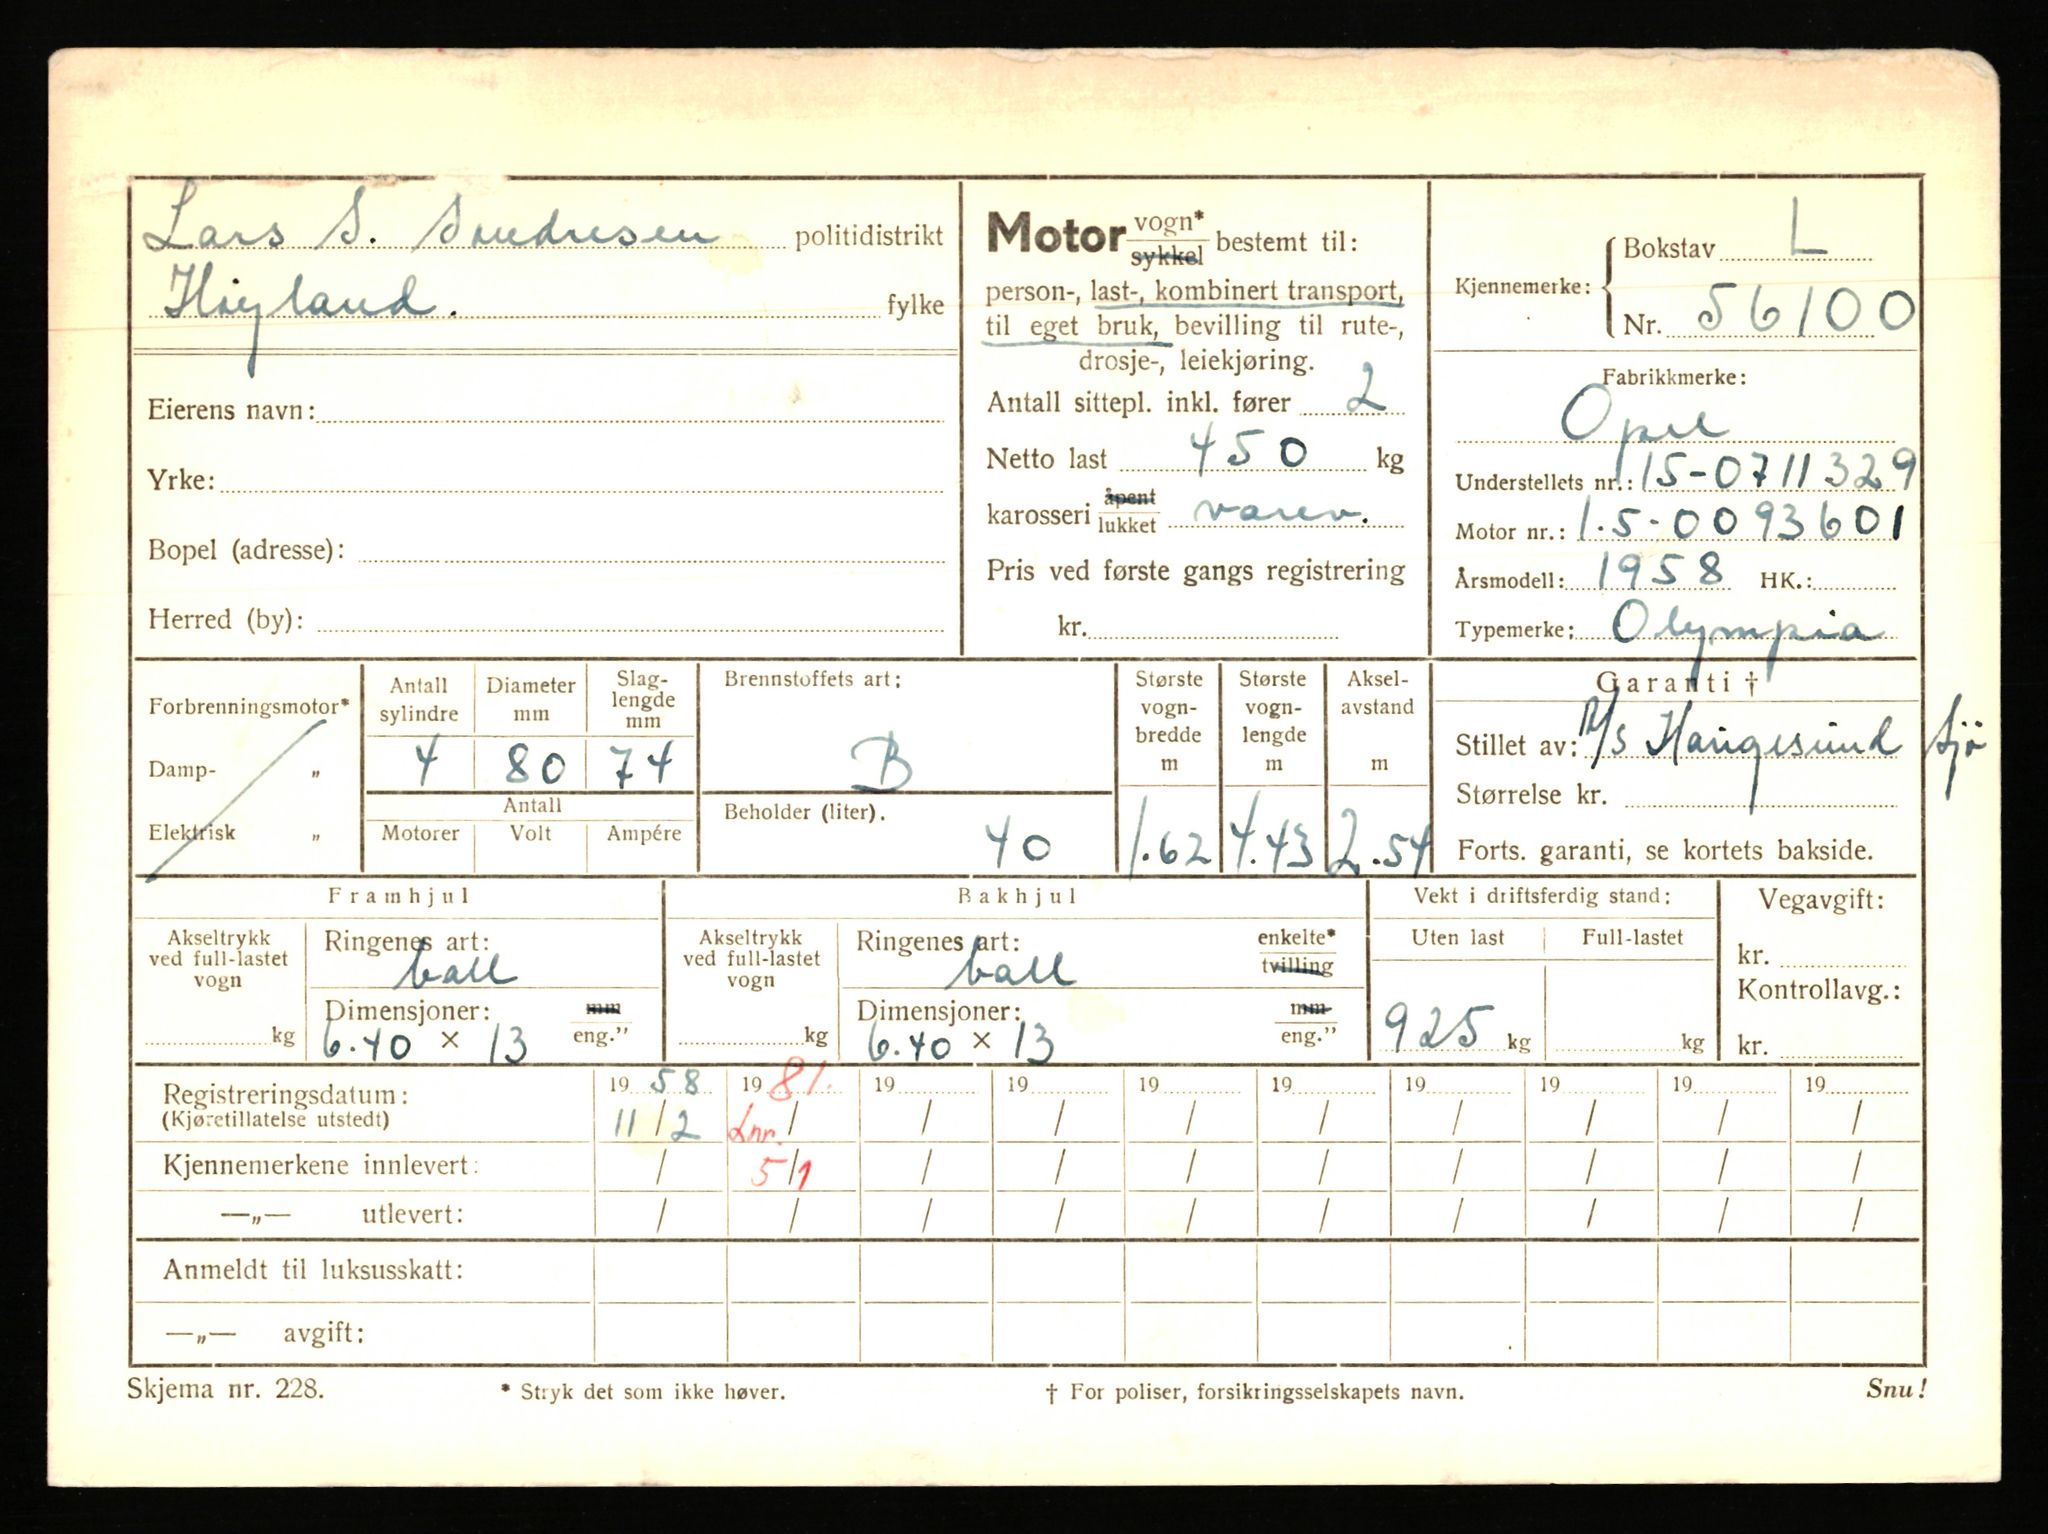 Lars S. Sondresen politidistrikt
Høyland. fylke
Eierens navn:
Yrke:
Bopel (adresse):
Herred (by):
Motor vogn* sykkel bestemt til:
person-, last-, kombinert transport,
til eget bruk, bevilling til rute-,
drosje-, leiekjøring.
Antall sittepl. inkl. fører 2
Netto last 450 kg
karosseri åpent lukket varev.
Pris ved første gangs registrering
kr.
Kjennemerke: Bokstav L
Nr. 56100
Fabrikkmerke:
Opel
Understellets nr.: 15-0711329
Motor nr.: 1.5-0093601
Årsmodell: 1958 HK.:
Typemerke: Olympia
Forbrenningsmotor*
Damp- „
Elektrisk „
Antall sylindre
Diameter mm
Slag-lengde mm
4 80 74
Antall
Motorer Volt Ampére
Brennstoffets art:
B
Beholder (liter).
40
Største vogn-bredde m
1.62
Største vogn-lengde m
4.43
Aksel-avstand m
2.54
Garanti †
Stillet av: A/S Haugesund Sjø
Størrelse kr.
Forts. garanti, se kortets bakside.
Framhjul
Akseltrykk ved full-lastet vogn
kg
Ringenes art:
ball
Dimensjoner: mm eng."
6.40 × 13
Bakhjul
Akseltrykk ved full-lastet vogn
kg
Ringenes art: enkelte* tvilling
ball
Dimensjoner: mm eng."
6.40 × 13
Vekt i driftsferdig stand:
Uten last Full-lastet
925 kg kg
Vegavgift:
kr.
Kontrollavg.:
kr.
Registreringsdatum: 19 58 19 81. 19 19 19 19 19 19 19 19
(Kjøretillatelse utstedt) 11/2 Lnr. / / / / / / / / /
Kjennemerkene innlevert: / 5/1 / / / / / / / /
—„— utlevert: / / / / / / / / / /
Anmeldt til luksusskatt:
—„— avgift:
Skjema nr. 228. * Stryk det som ikke høver. † For poliser, forsikringsselskapets navn. Snu!